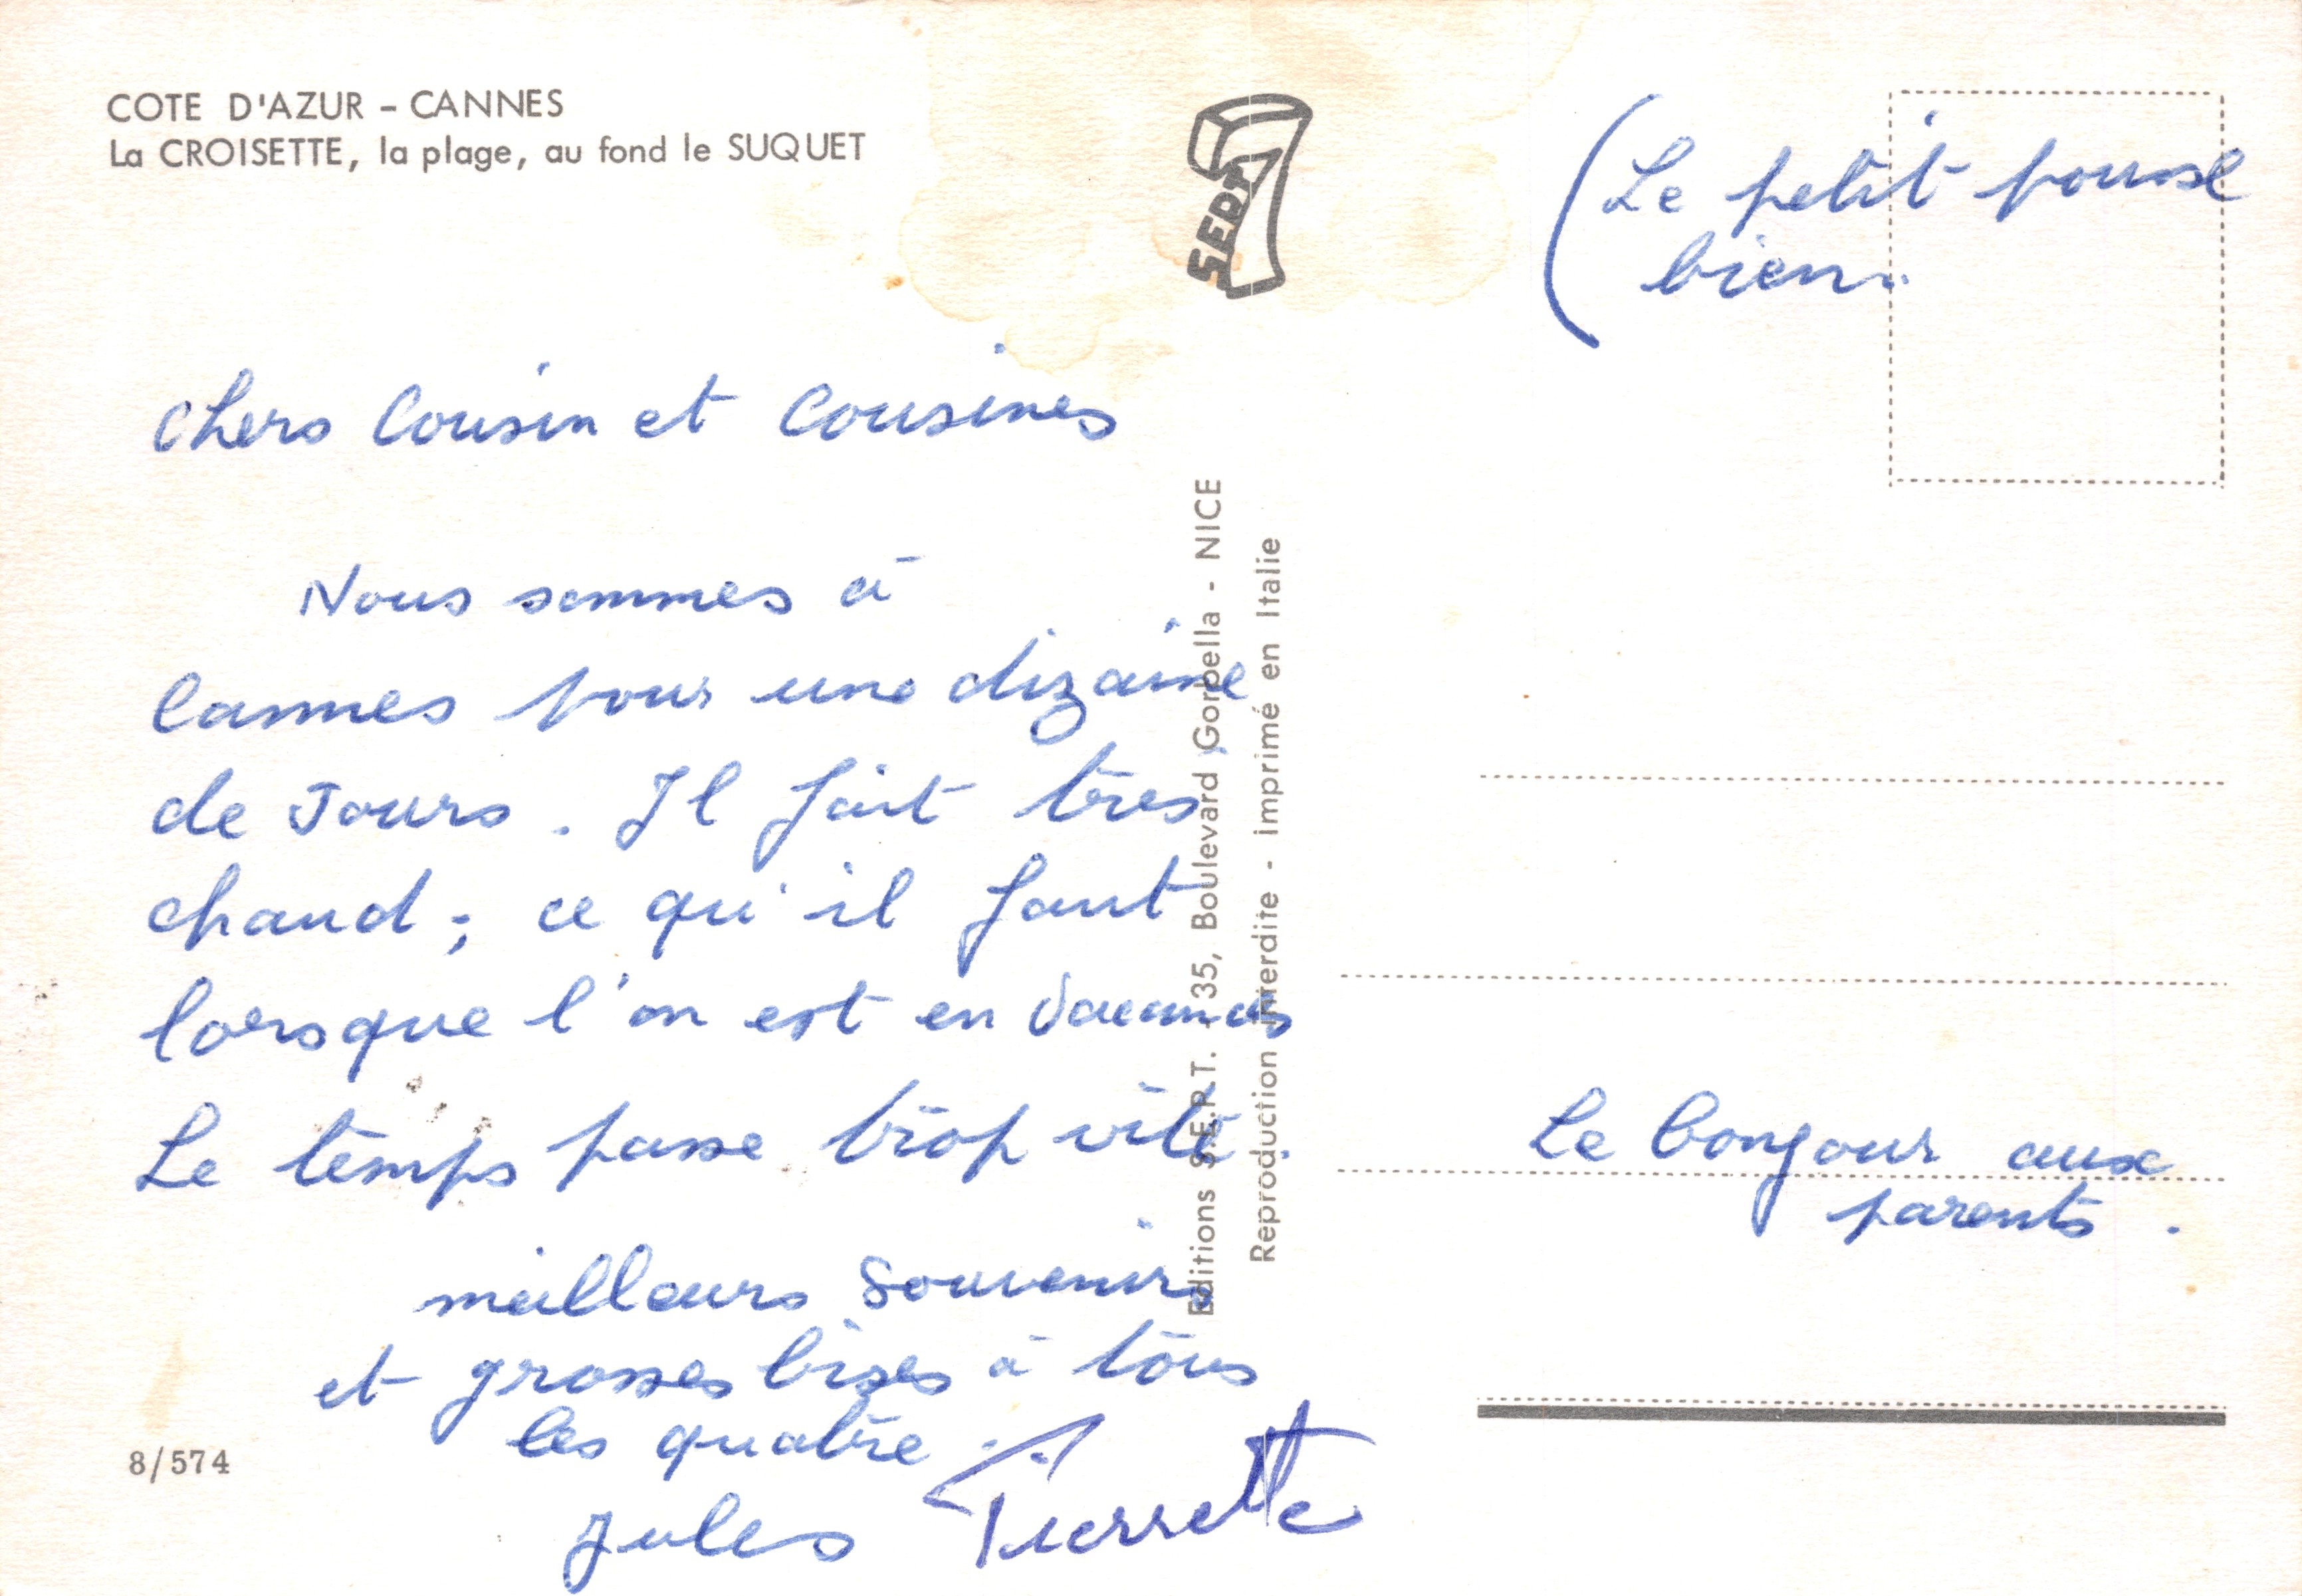 COTE D'AZUR – CANNES
La CROISETTE, la plage, au fond le SUQUET
SERT
(Le petit pousse
bien.
Chers Cousin et Cousines
Nous sommes à
Cannes pour une dizaine
de Jours. Il fait très
chaud ; ce qu'il faut
lorsque l'on est en Vacances
Le temps passe trop vite.
meilleurs Souvenirs
et grosses bises à tous
les quatre.
Jules Pierrette
8/574
Editions S.E.R.T. - 35, Boulevard Gorbella - NICE
Reproduction interdite - Imprimé en Italie
Le bonjour aux
parents.